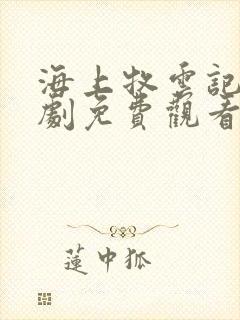 海上牧雲記
劇免費觀看
蓮中狐